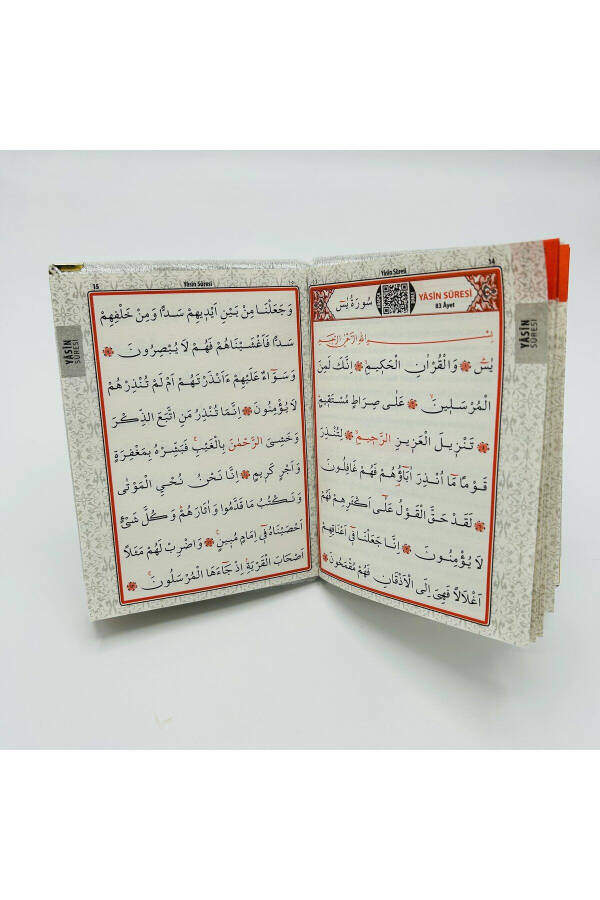 14
Yâsin Sûresi
YÂSİN SÛRESİ
83 Âyet
سُورَةُ يٰسٓ
بِسْمِ اللّٰهِ الرَّحْمٰنِ الرَّحِيمِ
يٰسٓ وَالْقُرْاٰنِ الْحَكِيمِۙ اِنَّكَ لَمِنَ
الْمُرْسَلِينَۙ عَلٰى صِرَاطٍ مُسْتَقِيمٍۜ
تَنْزِيلَ الْعَزِيزِ الرَّحِيمِۙ لِتُنْذِرَ
قَوْمًا مَٓا اُنْذِرَ اٰبَٓاؤُ۬هُمْ فَهُمْ غَافِلُونَ
لَقَدْ حَقَّ الْقَوْلُ عَلٰٓى اَكْثَرِهِمْ فَهُمْ
لَا يُؤْمِنُونَ اِنَّا جَعَلْنَا فِٓي اَعْنَاقِهِمْ
اَغْلَالًا فَهِيَ اِلَى الْاَذْقَانِ فَهُمْ مُقْمَحُونَ
YÂSİN
SÛRESİ
15
Yâsin Sûresi
وَجَعَلْنَا مِنْ بَيْنِ اَيْدِيهِمْ سَدًّا وَمِنْ خَلْفِهِمْ
سَدًّا فَاَغْشَيْنَاهُمْ فَهُمْ لَا يُبْصِرُونَ
وَسَوَٓاءٌ عَلَيْهِمْ ءَاَنْذَرْتَهُمْ اَمْ لَمْ تُنْذِرْهُمْ
لَا يُؤْمِنُونَ اِنَّمَا تُنْذِرُ مَنِ اتَّبَعَ الذِّكْرَ
وَخَشِيَ الرَّحْمٰنَ بِالْغَيْبِۚ فَبَشِّرْهُ بِمَغْفِرَةٍ
وَاَجْرٍ كَرِيمٍ اِنَّا نَحْنُ نُحْيِ الْمَوْتٰى
وَنَكْتُبُ مَا قَدَّمُوا وَاٰثَارَهُمْۜ وَكُلَّ شَيْءٍ
اَحْصَيْنَاهُ فِٓي اِمَامٍ مُبِينٍ۟ وَاضْرِبْ لَهُمْ مَثَلًا
اَصْحَابَ الْقَرْيَةِۢ اِذْ جَٓاءَهَا الْمُرْسَلُونَۚ
YÂSİN
SÛRESİ